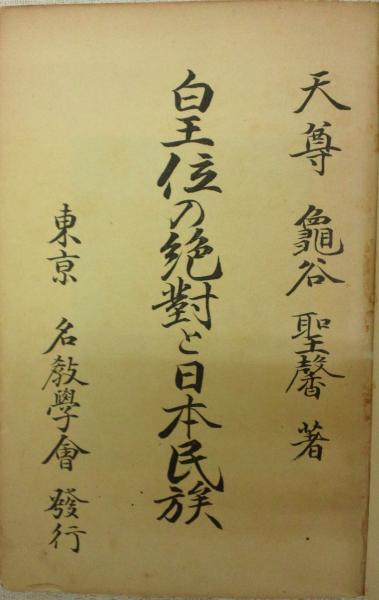 天尊 龜谷聖馨 著
皇位の絶對と日本民族
東京 名敎學會 發行